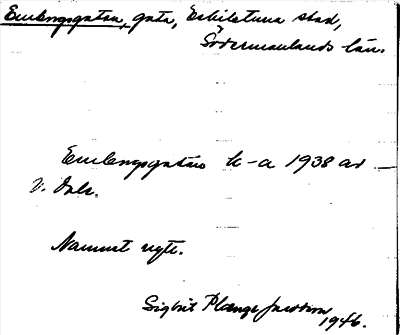 Emlengsgatan, gata, Eskilstuna stad,
Södermanlands län.
Emlengsgatan k-a 1938 av
V. Dale.
Namnet nytt.
Sigbrit Plange Jacobson
1946.